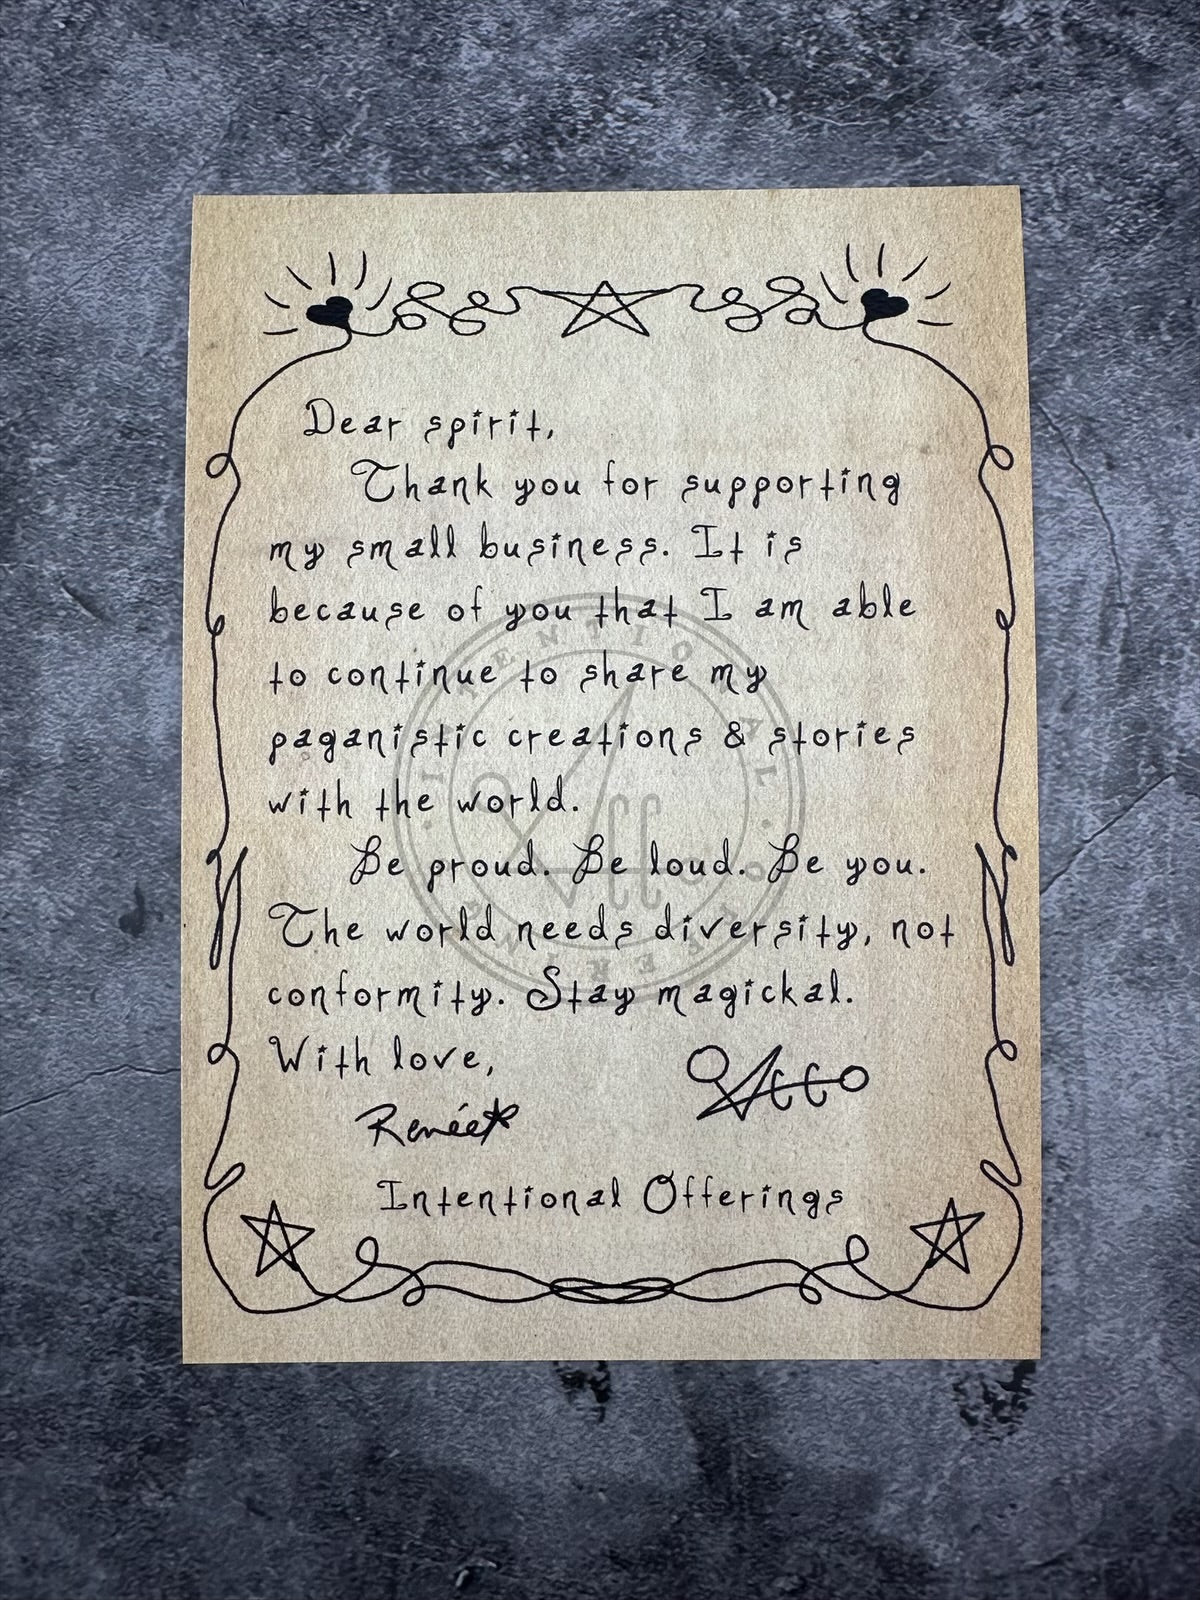 Dear spirit,
Thank you for supporting
my small business. It is
because of you that I am able
to continue to share my
paganistic creations & stories
with the world.
Be proud. Be loud. Be you.
The world needs diversity, not
conformity. Stay magickal.
With love,
Renée
Intentional Offerings
INTENTIONAL OFFERINGS